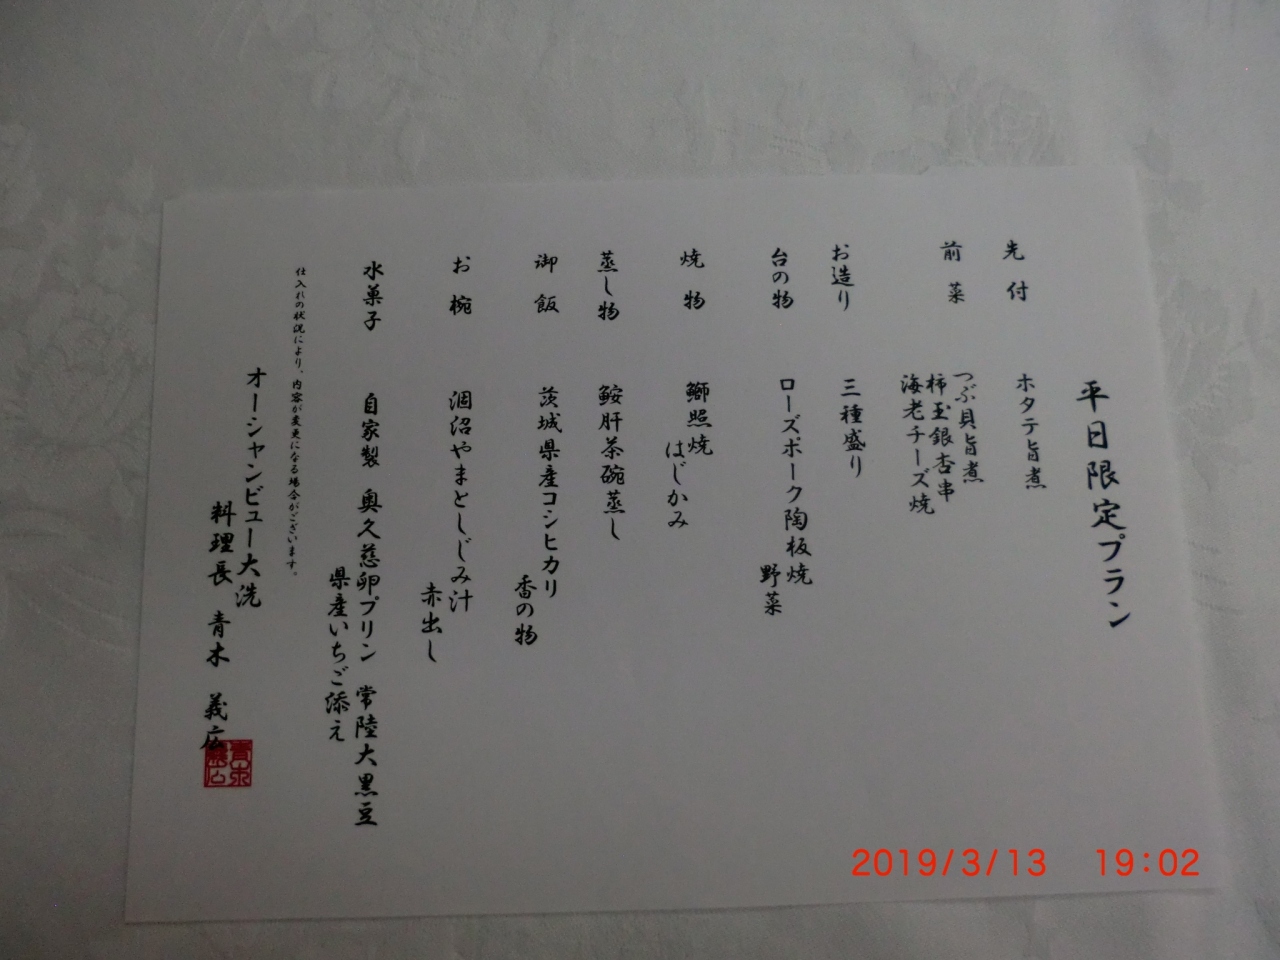 平日限定プラン
先付 ホタテ旨煮
前菜 つぶ貝旨煮
柿玉銀杏串
海老チーズ焼
お造り 三種盛り
台の物 ローズポーク陶板焼
野菜
焼物 鰤照焼
はじかみ
蒸し物 鮟肝茶碗蒸し
御飯 茨城県産コシヒカリ
香の物
お椀 涸沼やまとしじみ汁
赤出し
水菓子 自家製 奥久慈卵プリン 常陸大黒豆
県産いちご添え
仕入れの状況により、内容が変更になる場合がございます。
オーシャンビュー大洗
料理長 青木 義広
2019/3/13 19:02